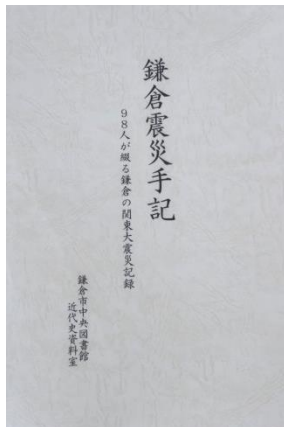 鎌倉震災手記
98人が綴る鎌倉の関東大震災記録
鎌倉市中央図書館
近代史資料室